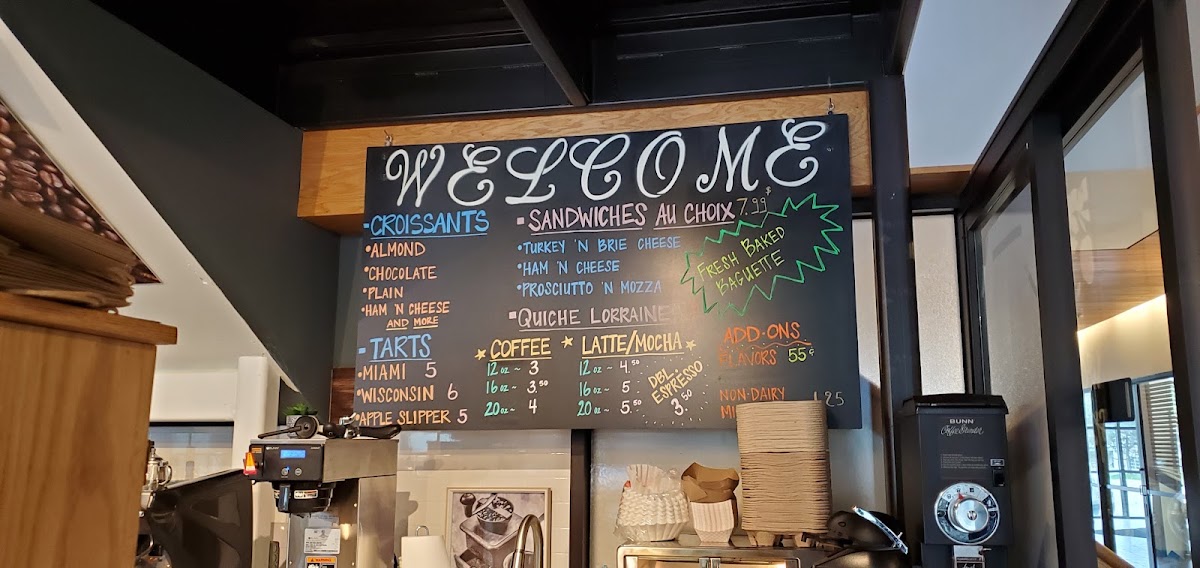 WELCOME
-CROISSANTS
•ALMOND
•CHOCOLATE
•PLAIN
•HAM 'N CHEESE
AND MORE
-TARTS
•MIAMI 5
•WISCONSIN 6
•APPLE SLIPPER 5
-SANDWICHES AU CHOIX 7.99$
•TURKEY 'N BRIE CHEESE
•HAM 'N CHEESE
•PROSCIUTTO 'N MOZZA
FRESH BAKED
BAGUETTE
-QUICHE LORRAINE
COFFEE
12oz ~ 3
16oz ~ 3.50
20oz ~ 4
LATTE/MOCHA
12oz ~ 4.50
16oz ~ 5
20oz ~ 5.50
DBL.
ESPRESSO
3.50
ADD-ONS
FLAVORS 55¢
NON-DAIRY
BUNN